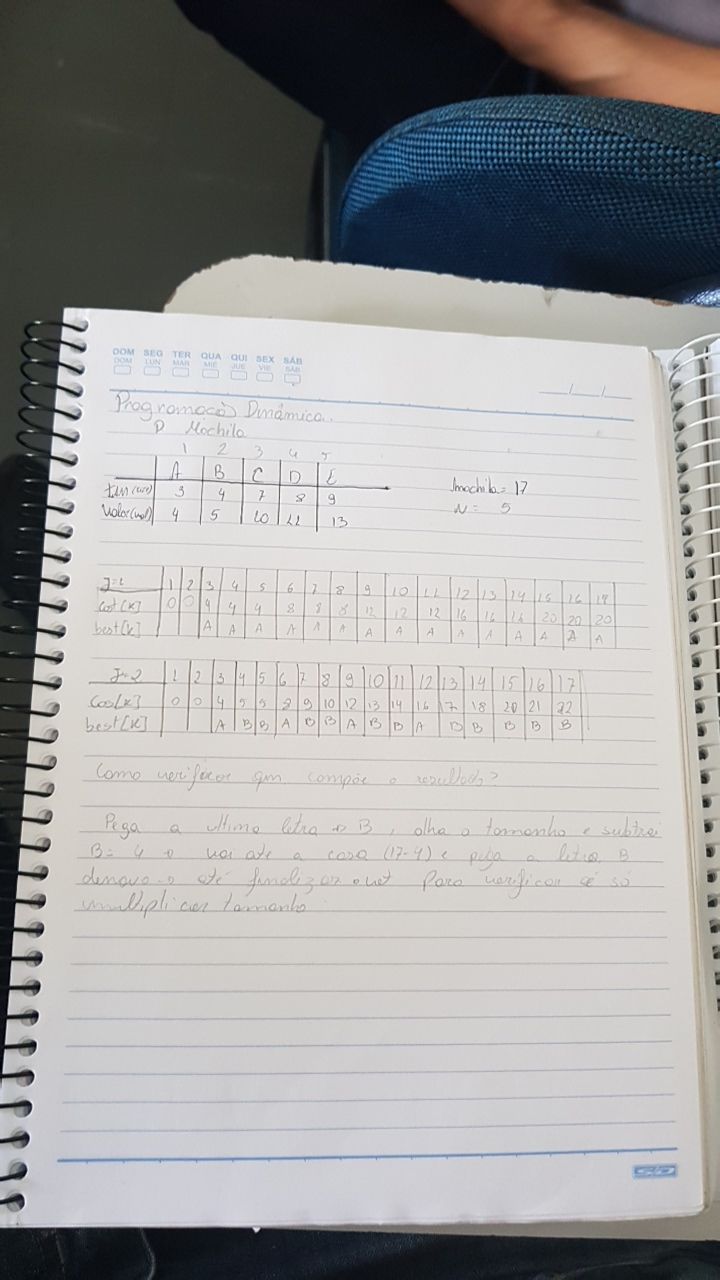 DOM SEG TER QUA QUI SEX SÁB
DOM LUN MAR MIE JUE VIE SAB
Programação Dinâmica
P Mochila
1 2 3 4 5
A B C D E
tam(size) 3 4 7 8 9
Valor(val) 4 5 10 11 13
Jmochila = 17
N = 5
J=1 1 2 3 4 5 6 7 8 9 10 11 12 13 14 15 16 17
cost[k] 0 0 4 4 4 8 8 8 12 12 12 16 16 16 20 20 20
best[k] A A A A A A A A A A A A A A A
J=2 1 2 3 4 5 6 7 8 9 10 11 12 13 14 15 16 17
Cos[k] 0 0 4 5 5 8 9 10 12 13 14 16 17 18 20 21 22
best[k] A B B A B B A B B A B B B B B
Como verificar quem compõe o resultado?
Pega a ultima letra B, olha o tamanho e subtrai
B=4 e vai até a casa (17-4) e pega a letra B
denovo até finalizar Para verificar é só
multiplicar tamanho